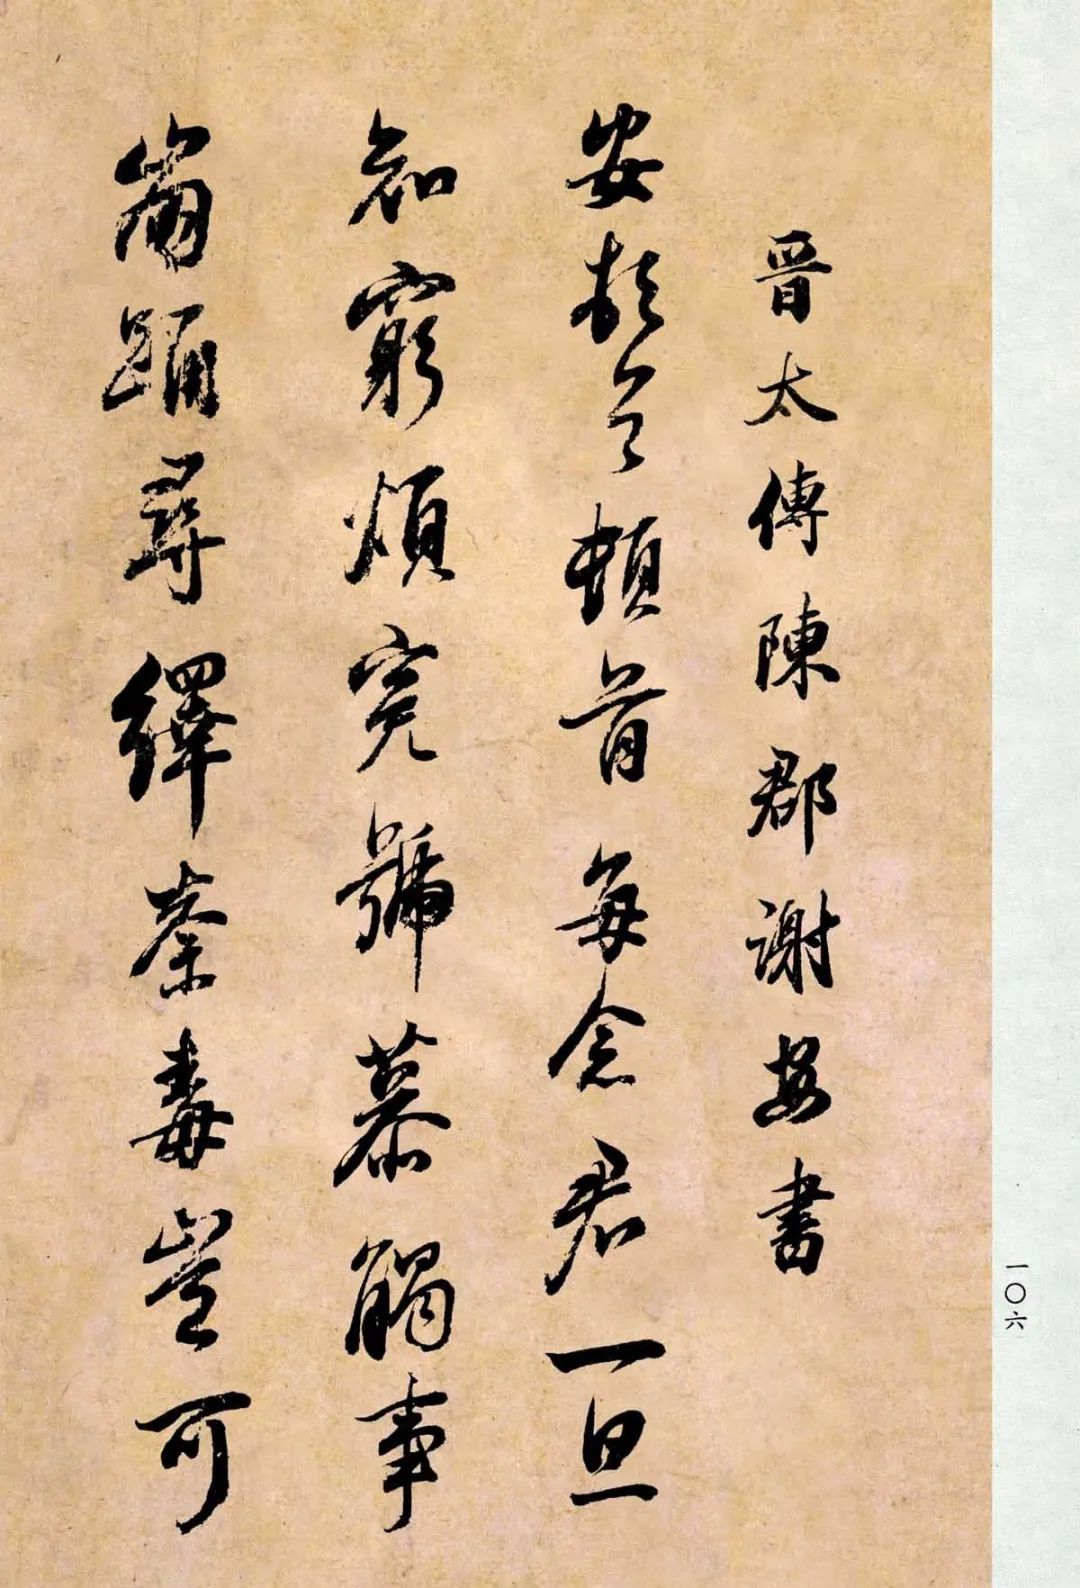 晉太傅陳郡謝安書
安頓首頓首每念君一旦
知窮煩冤號慕觸事
崩踊尋繹荼毒豈可
一〇六